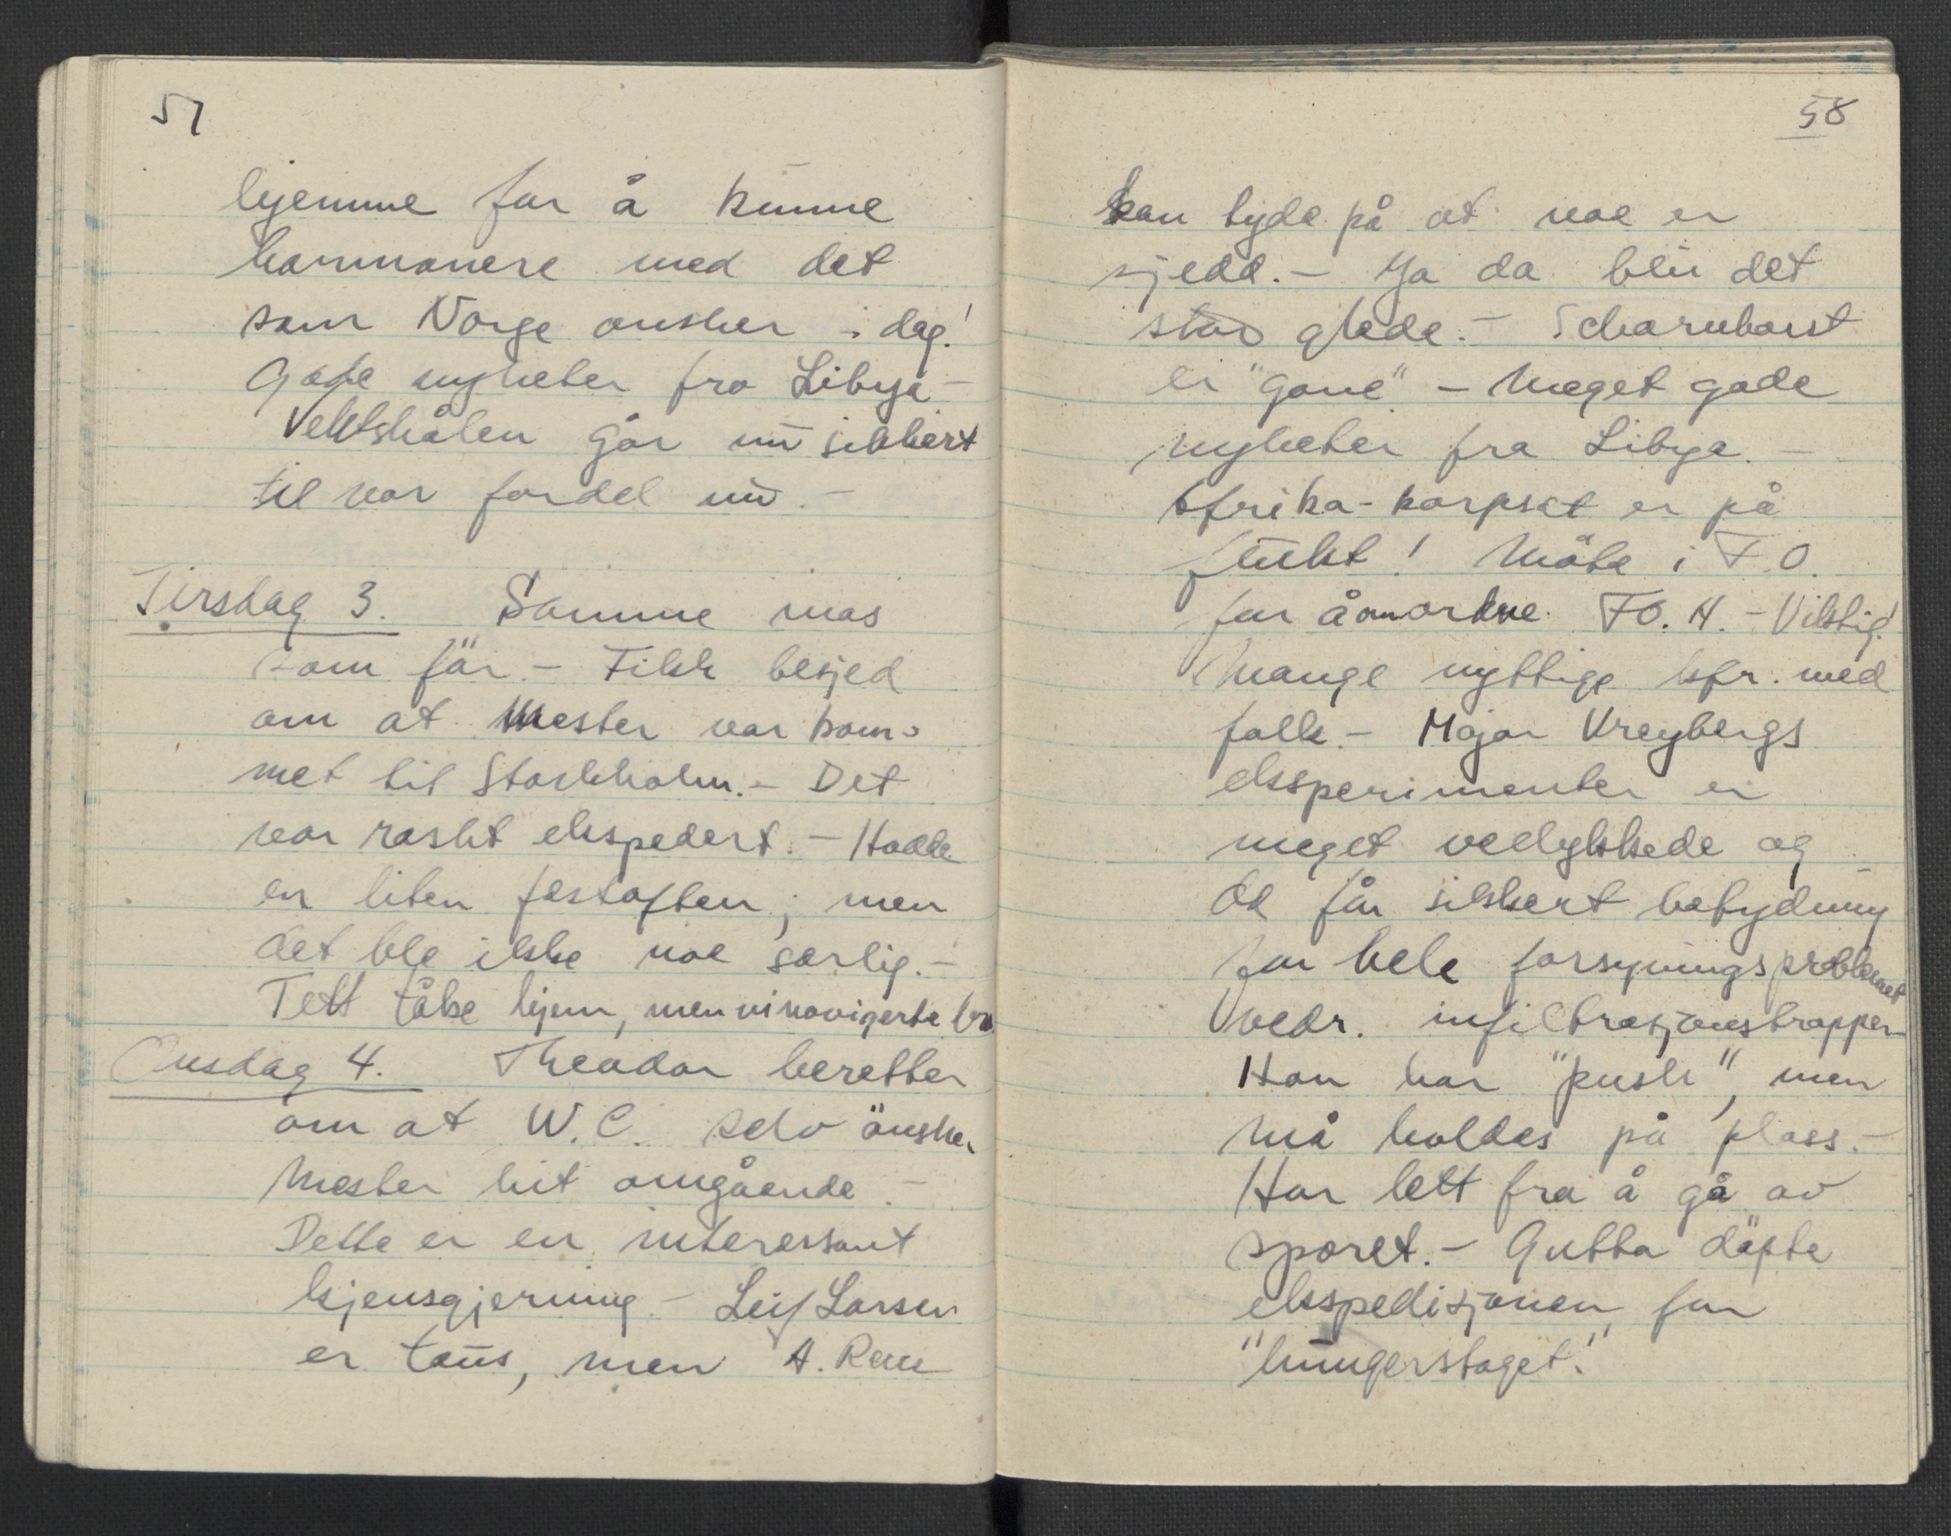 57
hjemme for å kunne
harmonere med det
som Norge ønsker i dag!
Gode nyheter fra Libya –
Vektskålen går nu sikkert
til vår fordel nu. –
Tirsdag 3. Samme mas
som för. – Fikk besjed
om at Mester var kom-
met til Stockholm. – Det
var raskt ekspedert. – Hadde
en liten festaften; men
det ble ikke noe særlig. –
Tett tåke hjem, men vi navigerte bra
Onsdag 4. Theodor beretter
om at W.C. selv önsker
Mester hit omgående. –
Dette er en interessant
kjensgjerning – Leif Larsen
er taus, men A. Ree
58
kan tyde på at noe er
sjedd. – Ja da blir det
stor glede. – Scharnhorst
er "Gone" – Meget gode
nyheter fra Libya. –
Afrika-korpset er på
flukt! Möte i F.O.
for å omordne FO.H. – Viktig!
Mange nyttige kfr. med
folk. – Major Kreybergs
eksperimenter er
meget vellykkede og
de får sikkert betydning
for hele forsyningsproblemet
vedr. infiltrasjonstropper –
Han har "push", men
må holdes på plass. –
Har lett fra å gå av
sporet. – Gutta döpte
ekspedisjonen for
"hungerstoget."